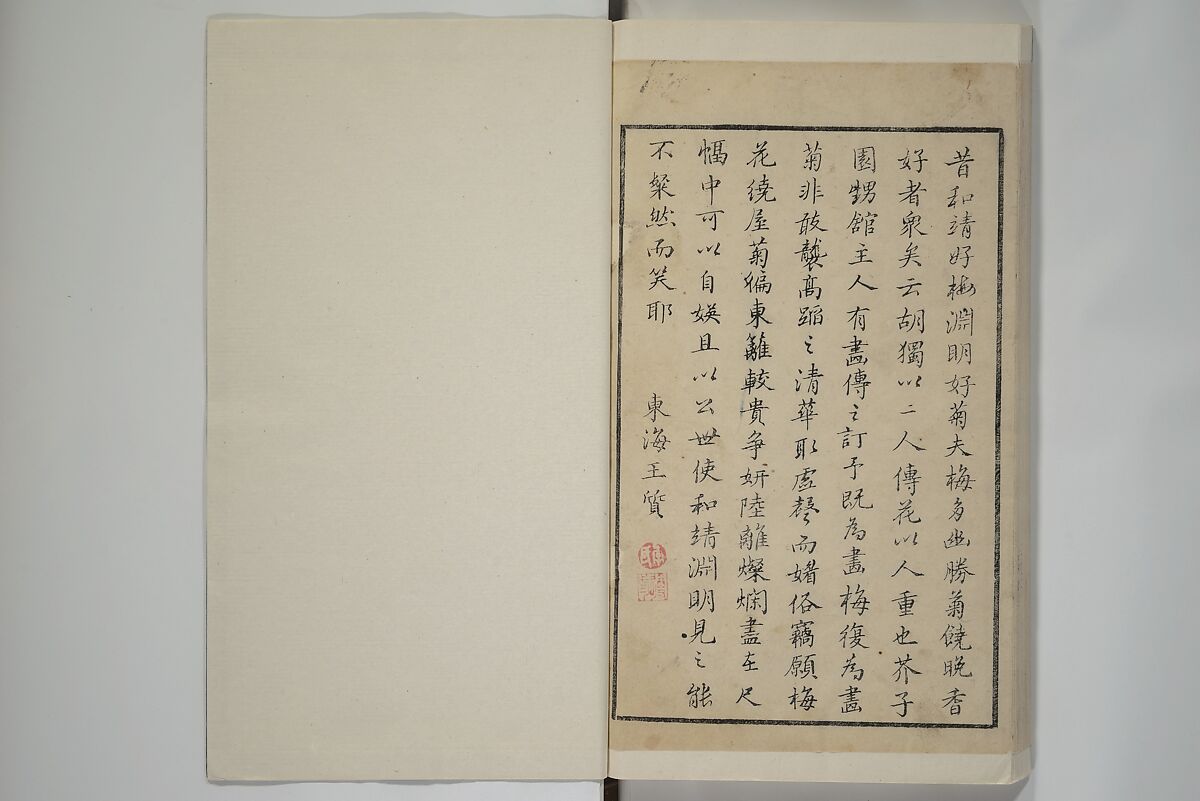 昔和靖好梅淵明好菊夫梅多幽勝菊饒晚香
好者衆矣云胡獨以二人傳花以人重也芥子
園甥館主人有畫傳之訂予既為畫梅復為畫
菊非敢襲高蹈之清華取虛聲而媚俗竊願梅
花繞屋菊徧東籬較貴爭妍陸離燦爛盡在尺
幅中可以自娛且以公世使和靖淵明見之能
不粲然而笑耶
東海王質